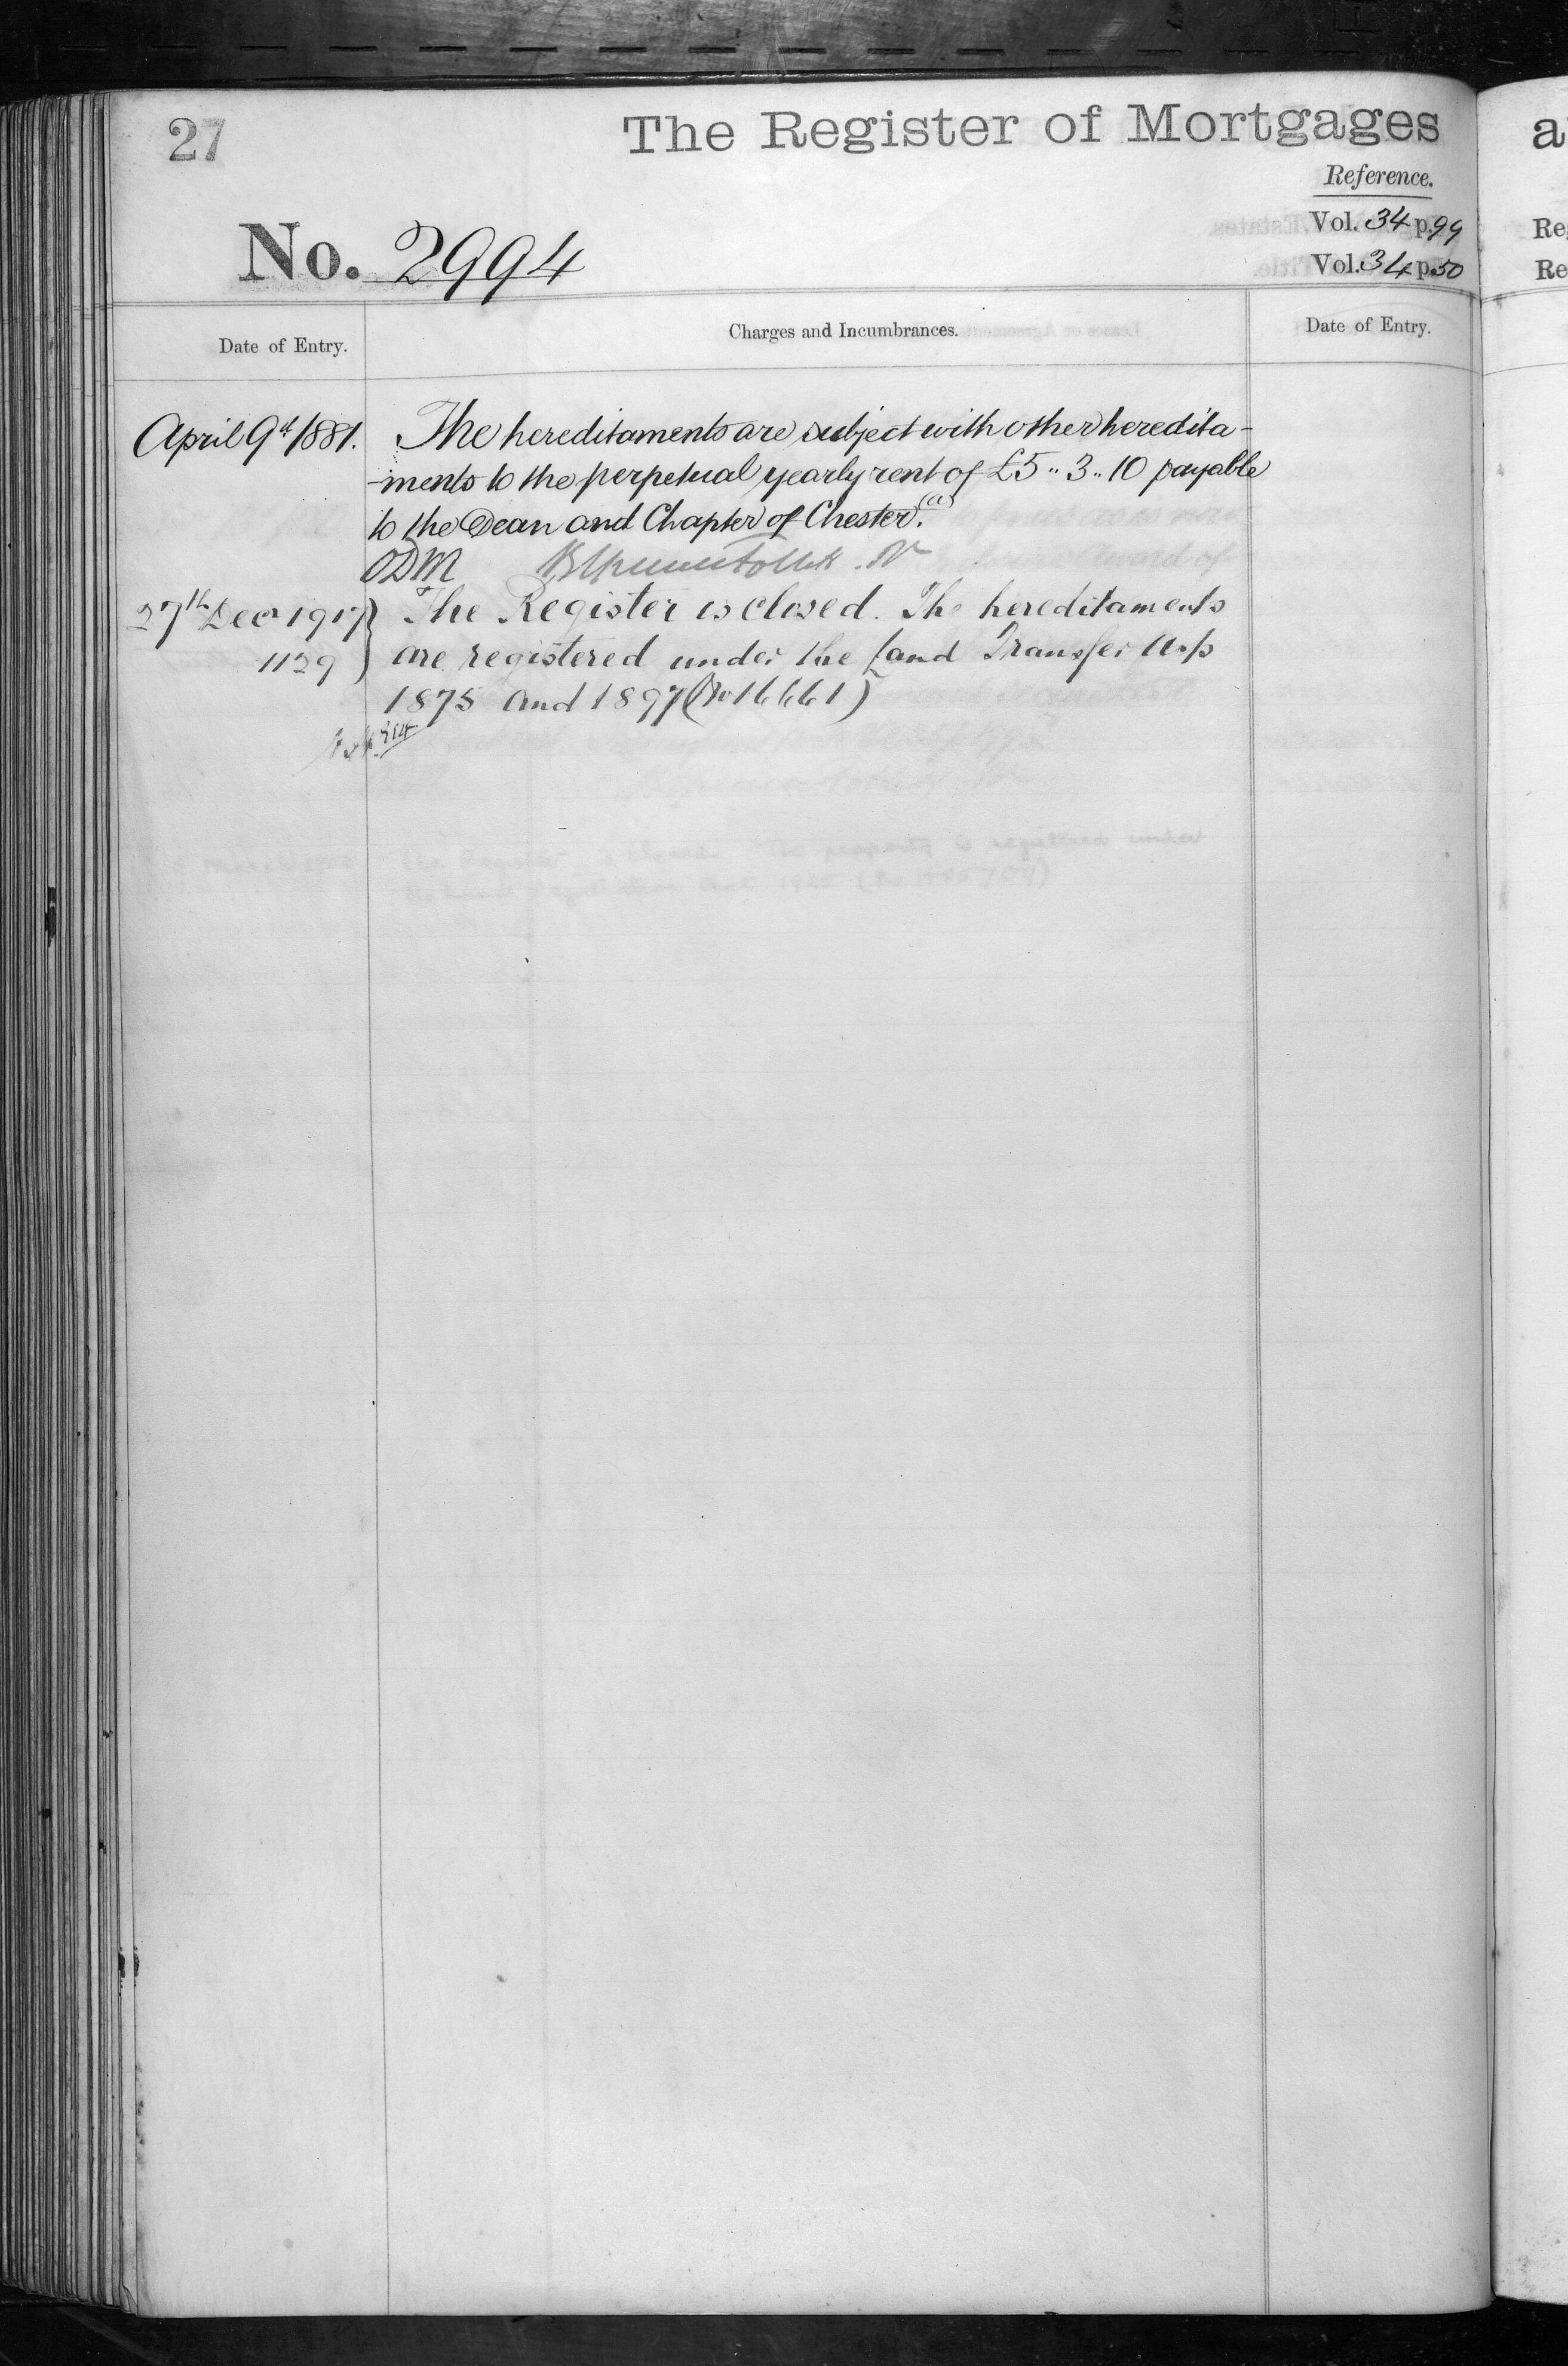 27
The Register of Mortgages
Reference.
No. 2994
Vol. 34 p. 99
Vol. 34 p. 50
Date of Entry.
Charges and Incumbrances.
Date of Entry.
April 9th 1881.
The hereditaments are subject with other heredita-
-ments to the perpetual yearly rent of £5 .. 3 .. 10 payable
to the Dean and Chapter of Chester. (a)
ODM
27th Decr 1917
1129
The Register is closed. The hereditaments
are registered under the Land Transfer Acts
1875 and 1897 (No 16661)
a
Re
Re